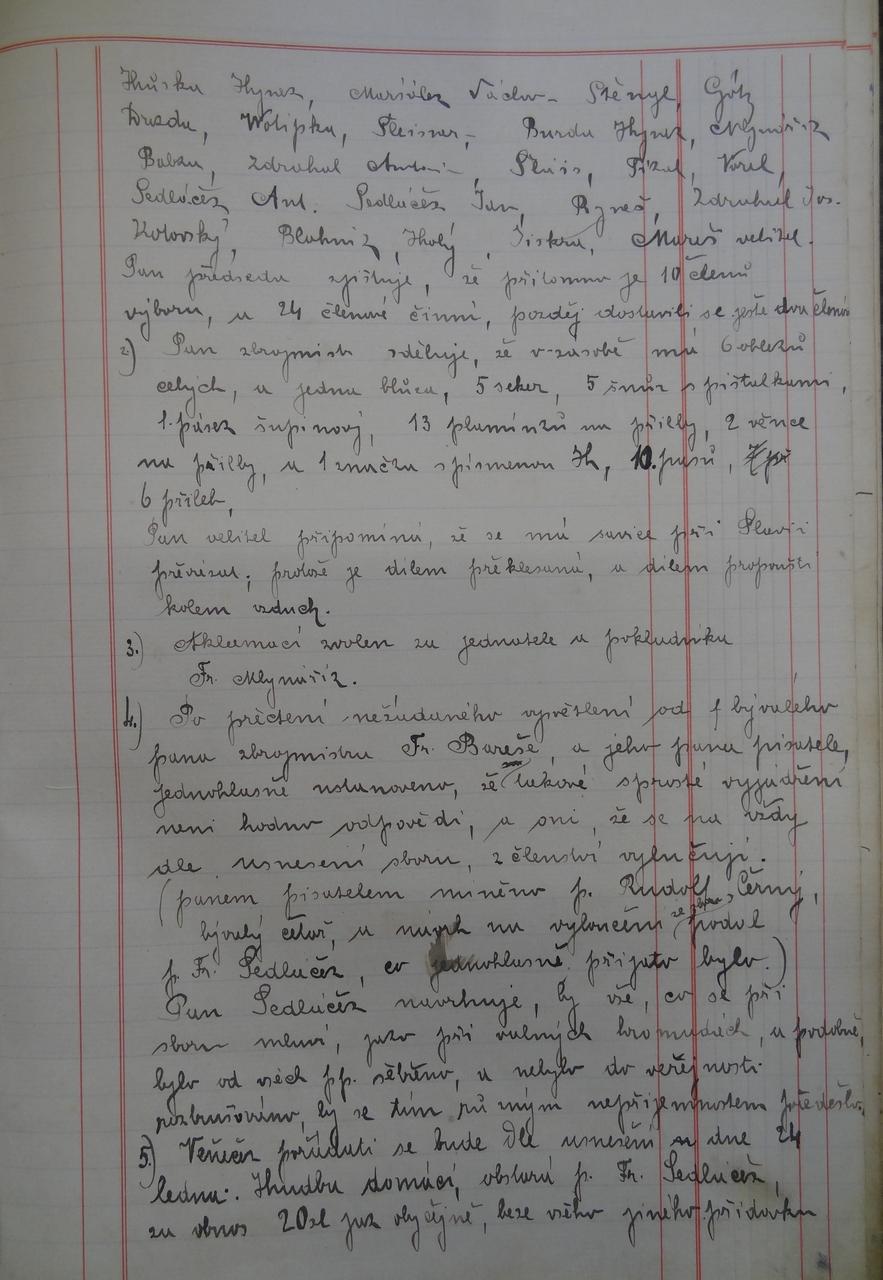 Huška Hynek, Maršálek Václav – Stěnyl, Götz
Drazda, Wolipka, Fleisner, – Burda Hynek, Mlynářík
Babka, Zdrahal Antonín, Šlais, Fišal, Vorel,
Sedláček Ant. Sedláček Jan, Ryneš, Zdrahal Jos.
Kotovský, Blahník, Holý, Jiskra, Mareš velitel.
Pan předseda zjišťuje, že přítomno je 10 členů
výboru, a 24 členové činní, později dostavili se ještě dva členové
2) Pan zbrojmistr sděluje, že v zásobě má 6 obleků
celých, a jednu blůzu, 5 seker, 5 šnůr s píšťalkami,
1. pásek šupinový, 13 plamínků na přilby, 2 věnce
na přilby, a 1 značka s písmenou H, 10. pasů,
6 přileb,
Pan velitel připomíná, že se má savice při Slavii
převázat; protože je dílem překlesaná, a dílem propouští
kolem vzduch.
3.) Aklamací zvolen za jednatele a pokladníka
Fr. Mlynařík.
4.) Po přečtení nežádaného vysvětlení od bývalého
pana zbrojmistra Fr. Bareše, a jeho pana pisatele,
jednohlasně ustanoveno, že takové sprosté vyjádření
není hodno odpovědi, a oni, že se na vždy
dle usnesení sboru, z členství vylučují.
(panem pisatelem míněno p. Rudolf Černý,
bývalý četař, a návrh na vyloučení ze sboru podal
p. Fr. Sedláček, co jednohlasně přijato bylo.)
Pan Sedláček navrhuje, by vše, co se při
sboru mluví, jako při valných hromadách, a podobně,
bylo od všech pp. šetřeno, a nebylo do veřejnosti
rozbušováno, by se tím různým nepříjemnostem předešlo.
5.) Věneček pořádati se bude dle usnesení dne 24
ledna. Hudbu domácí, obstará p. Fr. Sedláček,
za obnos 20 zl jak obyčejně, beze všeho jiného přídavku